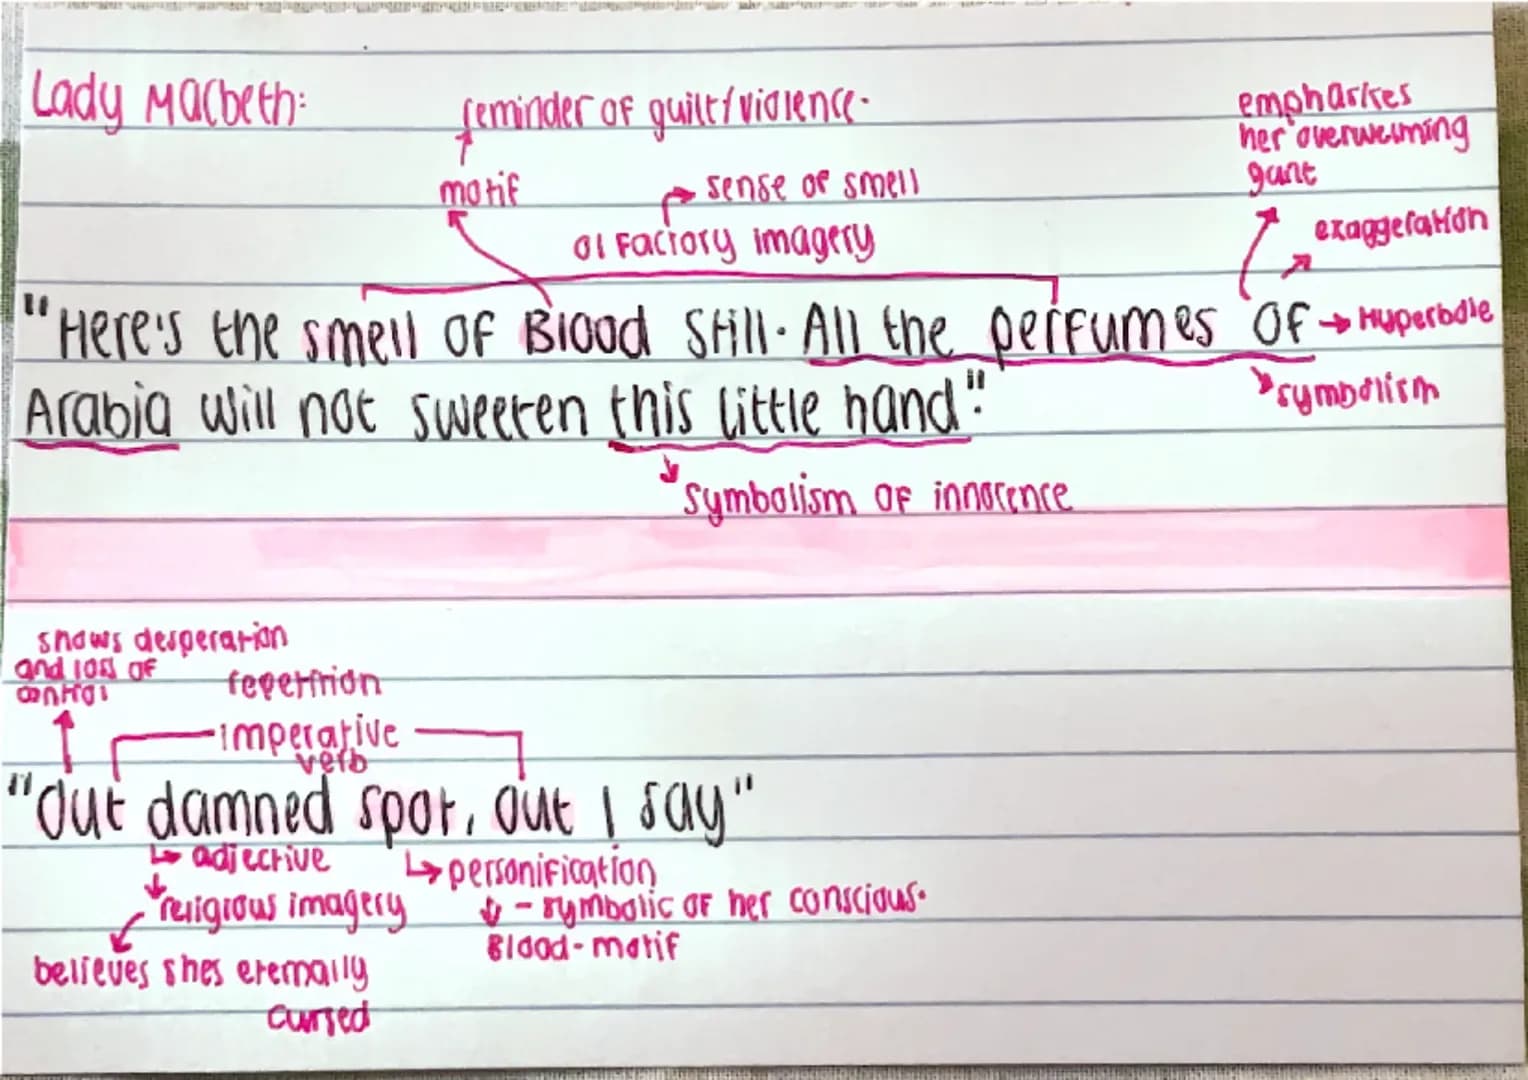 Lady Macbeth:
reminder of guilt/violence.
emphasises
her overwelming
guilt
motif
sense of smell
olfactory imagery
exaggeration
"Here's the smell of Blood Still. All the perfumes of
Hyperbole
symbolism
Arabia will not sweeten this little hand."
Symbolism of innocence
shows desperation
and loss of
control
repetition
imperative
verb
"Out damned spot, out I say"
adjective
personification
religious imagery
- symbolic of her conscious.
Blood-motif
believes shes eternally
cursed